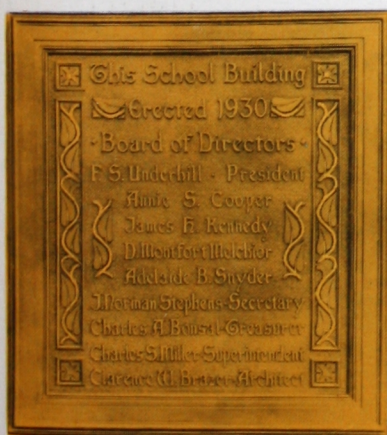 This School Building
Erected 1930
· Board of Directors ·
F. S. Underhill - President
Annie S. Cooper
James H. Kennedy
D. Montfort Melchior
Adelaide B. Snyder
J. Norman Stephens-Secretary
Charles A. Bonsal-Treasurer
Charles S. Miller-Superintendent
Clarence W. Brazer-Architect